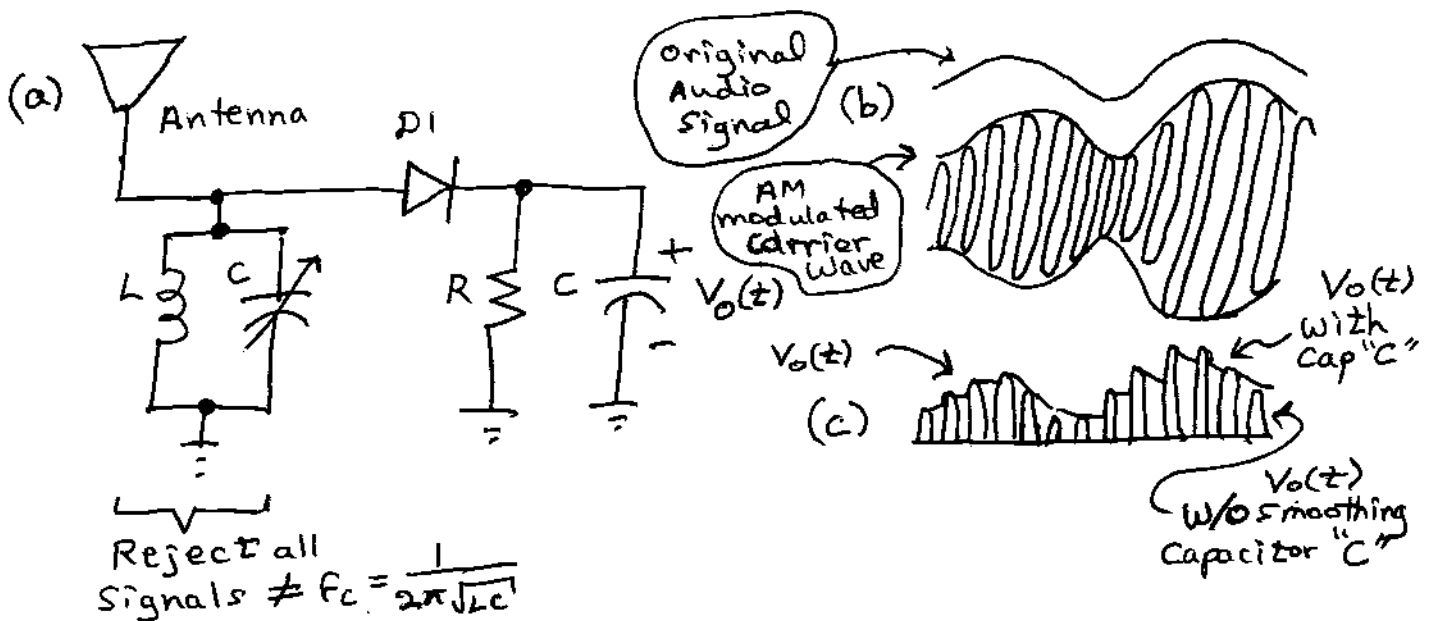 (a)
Antenna
D1
L
C
R
C
+
Vo(t)
-
Reject all
Signals ≠ fc = 1/2π√LC
Original
Audio
Signal
(b)
AM
modulated
Carrier
Wave
Vo(t)
with
Cap "C"
Vo(t)
(c)
Vo(t)
W/O smoothing
Capacitor "C"